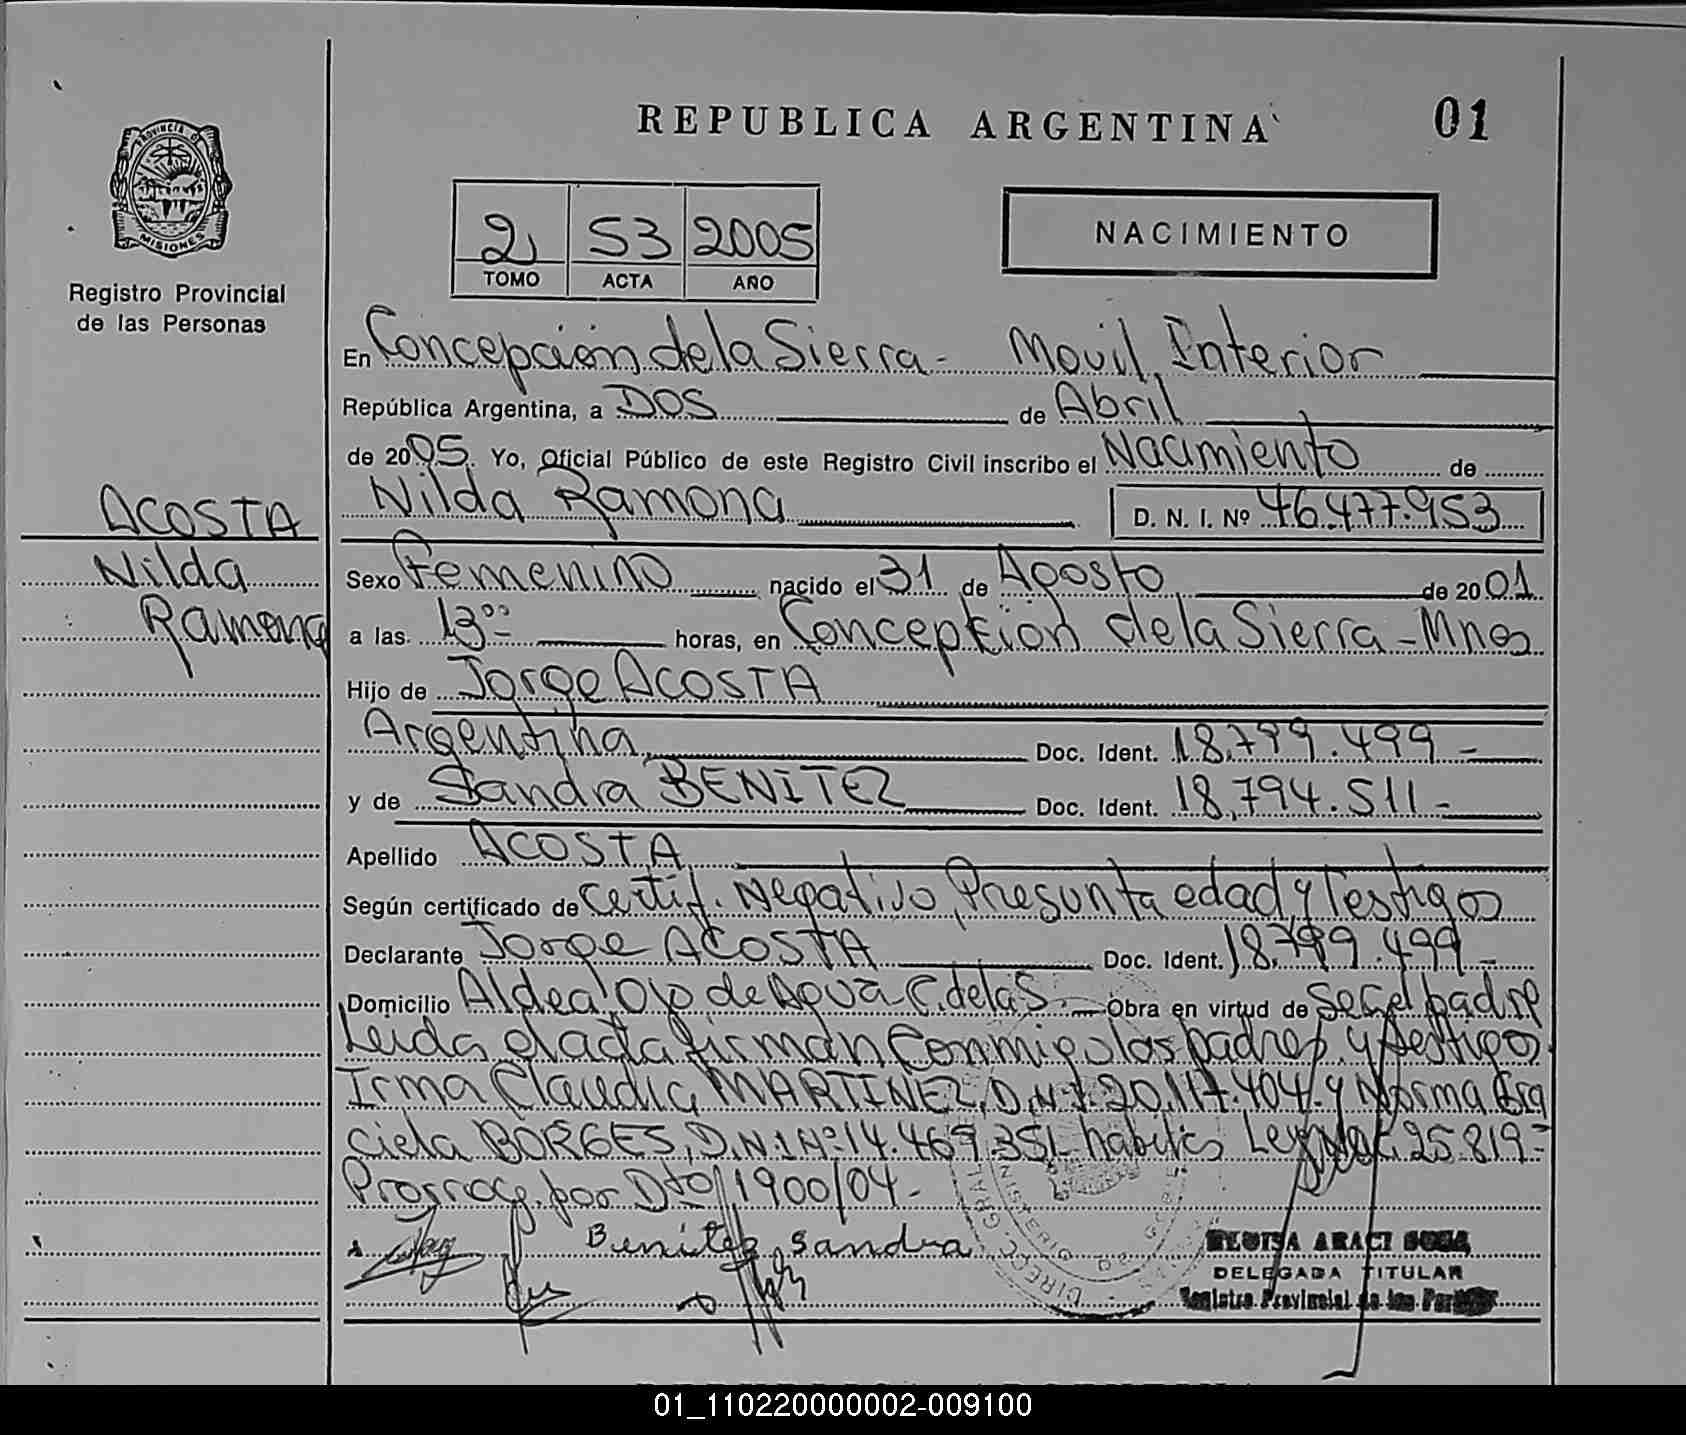 REPUBLICA ARGENTINA
01
PROVINCIA DE
MISIONES
Registro Provincial
de las Personas
2 53 2005
TOMO ACTA AÑO
NACIMIENTO
En Concepción de la Sierra - Movil Interior
República Argentina, a DOS de Abril
de 2005. Yo, Oficial Público de este Registro Civil inscribo el Nacimiento de
Nilda Ramona D. N. I. Nº 46.477.953
ACOSTA
Nilda
Ramona
Sexo Femenino nacido el 31 de Agosto de 2001
a las 13°° horas, en Concepcion de la Sierra - Mnes
Hijo de Jorge ACOSTA
Argentina Doc. Ident. 18.799.499 -
y de Sandra BENITEZ Doc. Ident. 18.794.511 -
Apellido ACOSTA
Según certificado de Certif. Negativo, Presunta edad y Testigos
Declarante Jorge ACOSTA Doc. Ident. 18.799.499 -
Domicilio Aldea Ojo de Agua - C. de la S. - Obra en virtud de Ser el padre
Leida el acta firman Conmigo los padres y testigos
Irma Claudia MARTINEZ, D.N.I. 20.117.404 y Norma Gra
ciela BORGES, D.N.I Nº 14.469.351 habiles Ley 25.819 -
Prorrog. por Dto 1900/04 -
Benitez, Sandra
ARACI
DELEGADA TITULAR
Registro Provincial de las
01_110220000002-009100